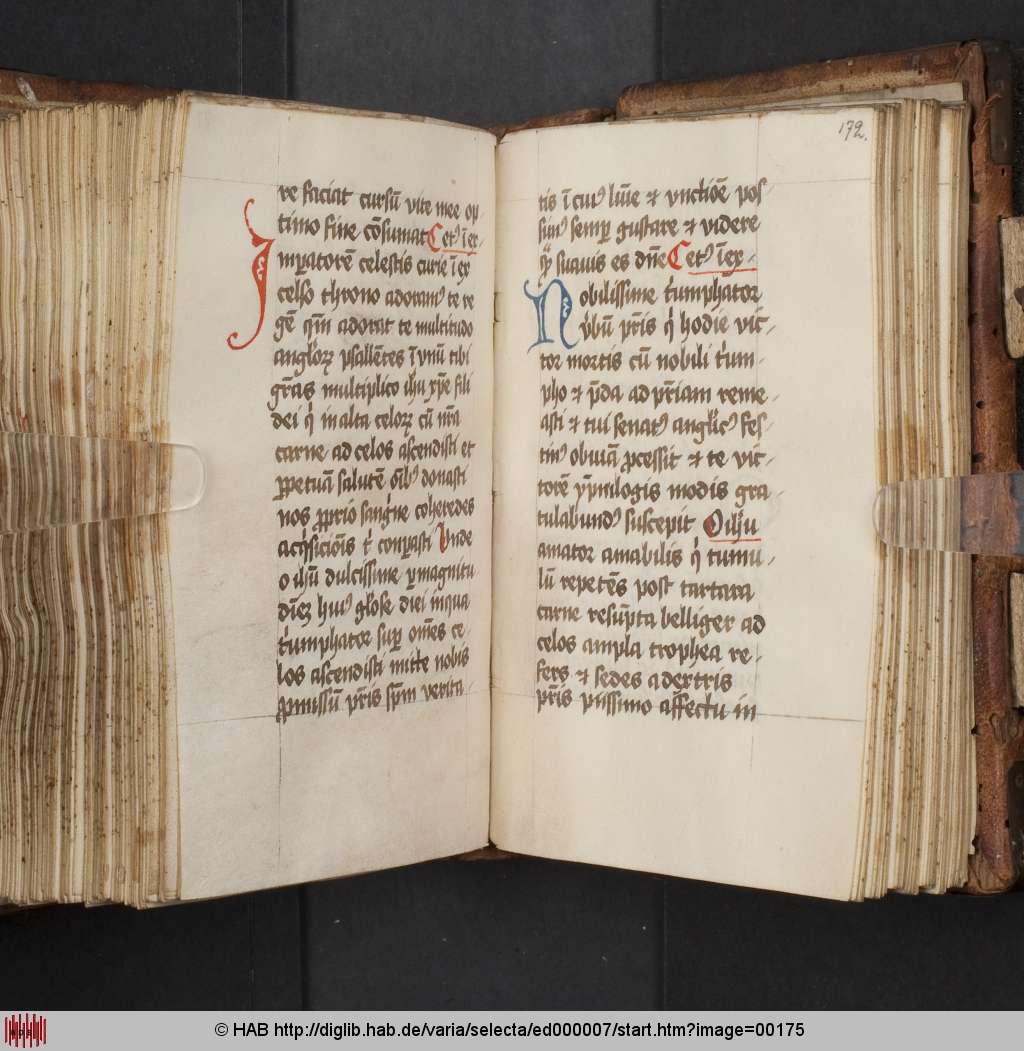 re faciat cursū vite mee op-
timo fine cōsumat Cetꝰ ī ex-
Imꝑatorē celestis curie ī ex
celso throno adoramꝰ te re
gē qm̄ adorat te multitudo
anglorꝝ psallētes ī vnū tibi
gr̄as multiplico ihū xp̄e fili
dei qͥ in alta celorꝝ cū nr̄a
carne ad celos ascendisti et
ꝑpetuā salutē oībꝰ donasti
nos ꝓprio sangͥne coheredes
Vnde
o ihū dulcissime ꝑ magnitu-
dīez huiꝰ gl̄ose diei in qua
tͥumphator suꝑ om̄es ce-
los ascendisti mitte nobis
ꝓmissū pr̄is sp̄m verita-
172.
tis ī cuiꝰ lūie ⁊ vnctiōe pos-
simꝰ semꝑ gustare ⁊ videre
suauis es dn̄e Cetꝰ ī ex-
Nobilissime tͥumphator
pr̄is qͥ hodie vic-
tor mortis cū nobili tͥum-
pho ⁊ p̄da ad pr̄iam reme-
asti ⁊ tui senatꝰ anglicꝰ fes-
tinꝰ obuiā ꝓcessit ⁊ te vic-
torē ympnilogis modis gra-
tulabundꝰ suscepit O ihū
amator amabilis qͥ tumu-
lū repetēs post tartara
carne resūpta belliger ad
celos ampla trophea re-
fers ⁊ sedes a dextris
pr̄is piissimo affectu in
© HAB http://diglib.hab.de/varia/selecta/ed000007/start.htm?image=00175